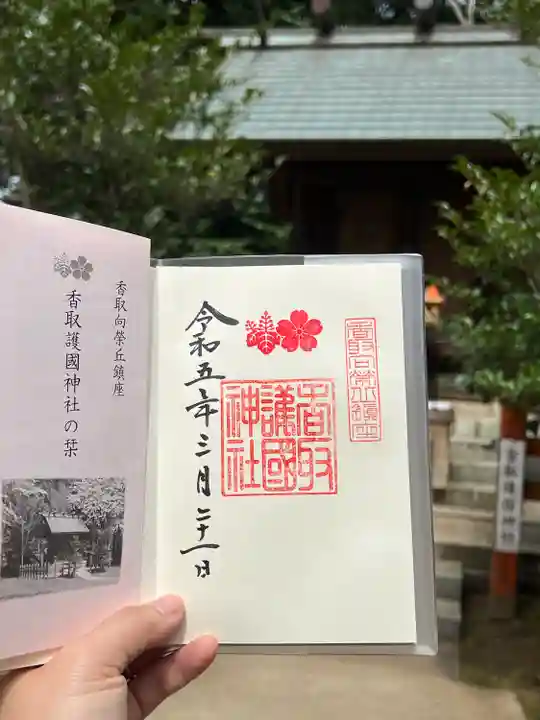 香取向榮丘鎮座
香取護國神社の栞
香取護國神社
令和五年三月二十一日
香取護國神社